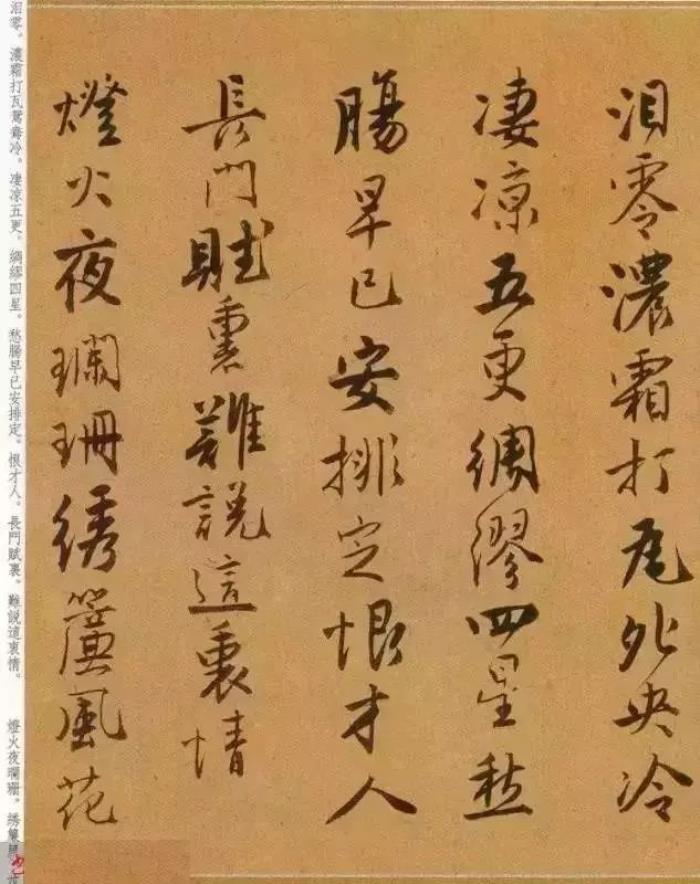 泪零濃霜打瓦夗央冷
凄凉五更綢繆四星愁
腸早已安排定恨才人
長門賦裏難説這裏情
燈火夜瓓珊綉簾風花
泪零。濃霜打瓦鴛鴦冷。凄凉五更。綢繆四星。愁腸早已安排定。恨才人。長門賦裏。難説這衷情。 燈火夜瓓珊。綉簾